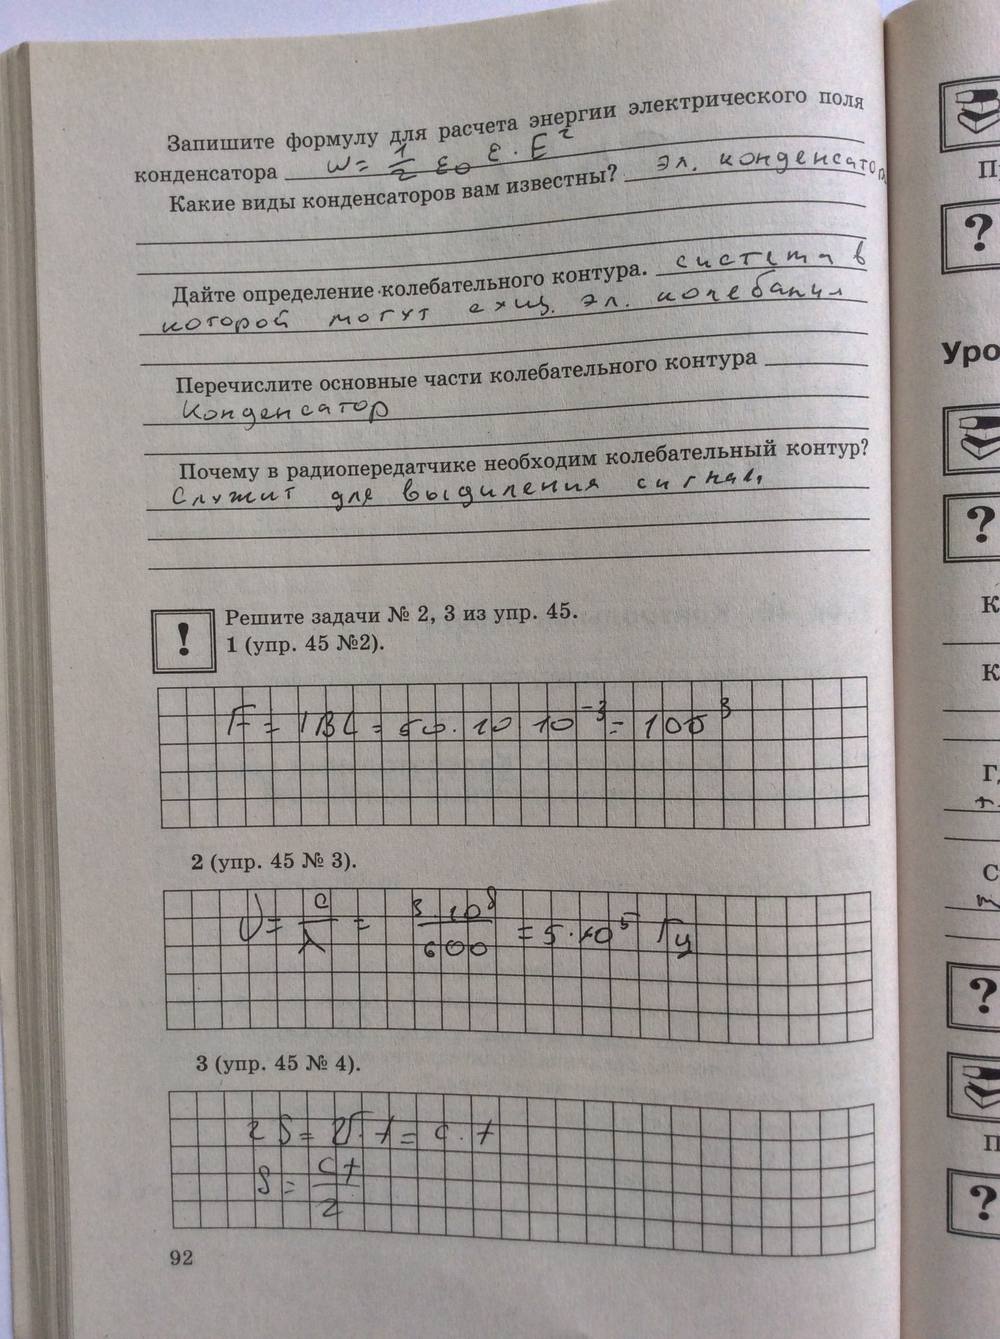 Запишите формулу для расчета энергии электрического поля
конденсатора w = 1/2 ε₀ ε · E²
Какие виды конденсаторов вам известны? эл. конденсатор
Дайте определение колебательного контура. система в
которой могут сущ. эл. колебания
Перечислите основные части колебательного контура
Конденсатор
Почему в радиопередатчике необходим колебательный контур?
Служит для выдиления сигнал,
! Решите задачи № 2, 3 из упр. 45.
1 (упр. 45 №2).
F = IBL = 50 · 10 10⁻³ = 100 ³
2 (упр. 45 № 3).
ν = c/λ = 3·10⁸/600 = 5·10⁵ Гц
3 (упр. 45 № 4).
2S = v·t = c·t
S = ct/2
92
П
?
Уро
?
К
К
Г
С
?
П
?